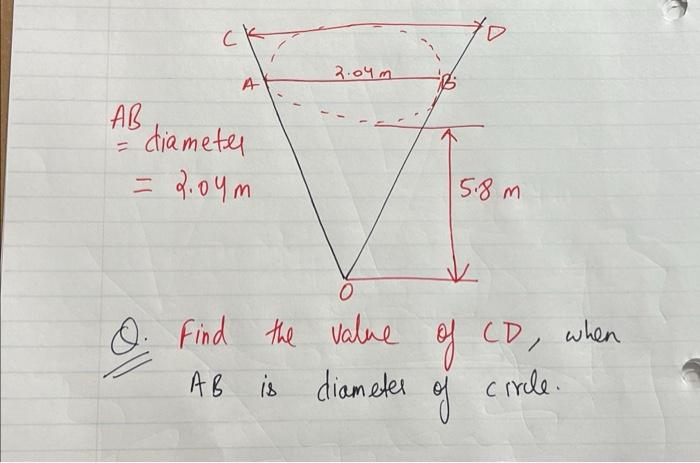 C D
A 2.04 m B
AB
= diameter
= 2.04 m
5.8 m
O
Q. Find the value of CD, when
AB is diameter of circle.